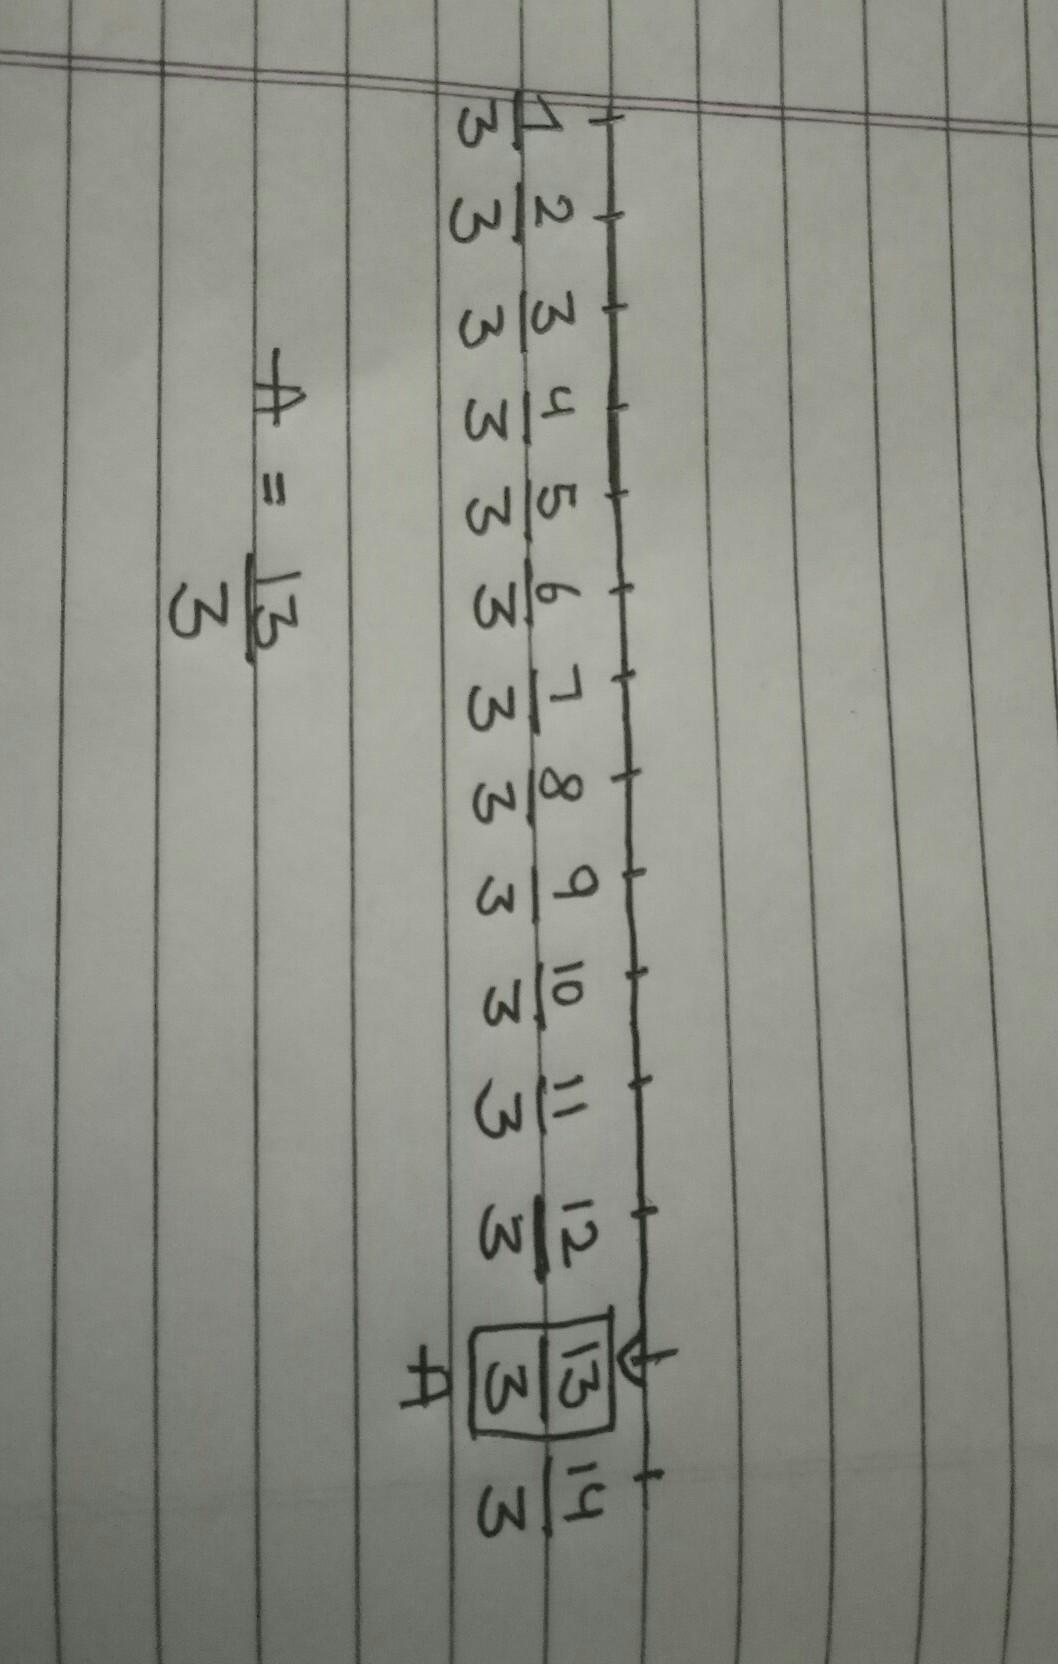 1/3 2/3 3/3 4/3 5/3 6/3 7/3 8/3 9/3 10/3 11/3 12/3 13/3 14/3
A
A = 13/3